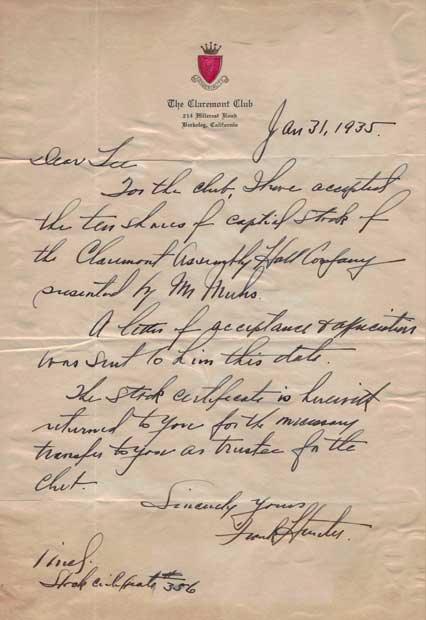 The Claremont Club
214 Hillcrest Road
Berkeley, California
Jan 31, 1935.
Dear Lee
For the club, I have accepted
the ten shares of captial stock of
the Claremont Assembly Hall Company
presented by Mr
A letter of acceptance & appreciation
was sent to him this date.
The stock certificate is herewith
returned to you for the necessary
transfer to you as trustee for the
Club.
Sincerely yours
Frank
1 incl.
Stock certificate #356